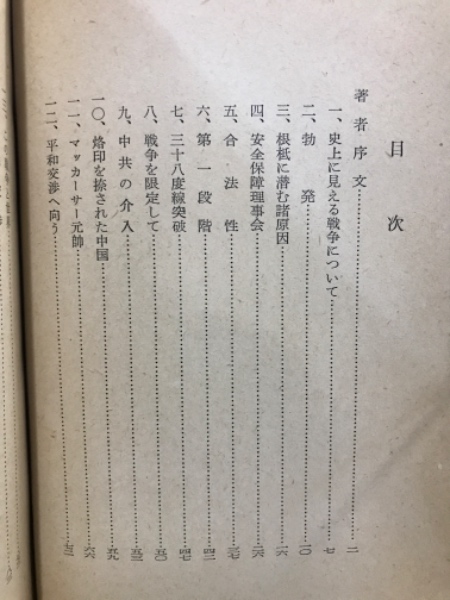 目次
著者序文……二
一、史上に見える戦争について……七
二、勃発……一〇
三、根柢に潜む諸原因……一六
四、安全保障理事会……二六
五、合法性……三七
六、第一段階……四二
七、三十八度線突破……四七
八、戦争を限定して……五〇
九、中共の介入……五三
一〇、烙印を捺された中国……五九
一一、マッカーサー元帥……六六
一二、平和交渉へ向う……七三